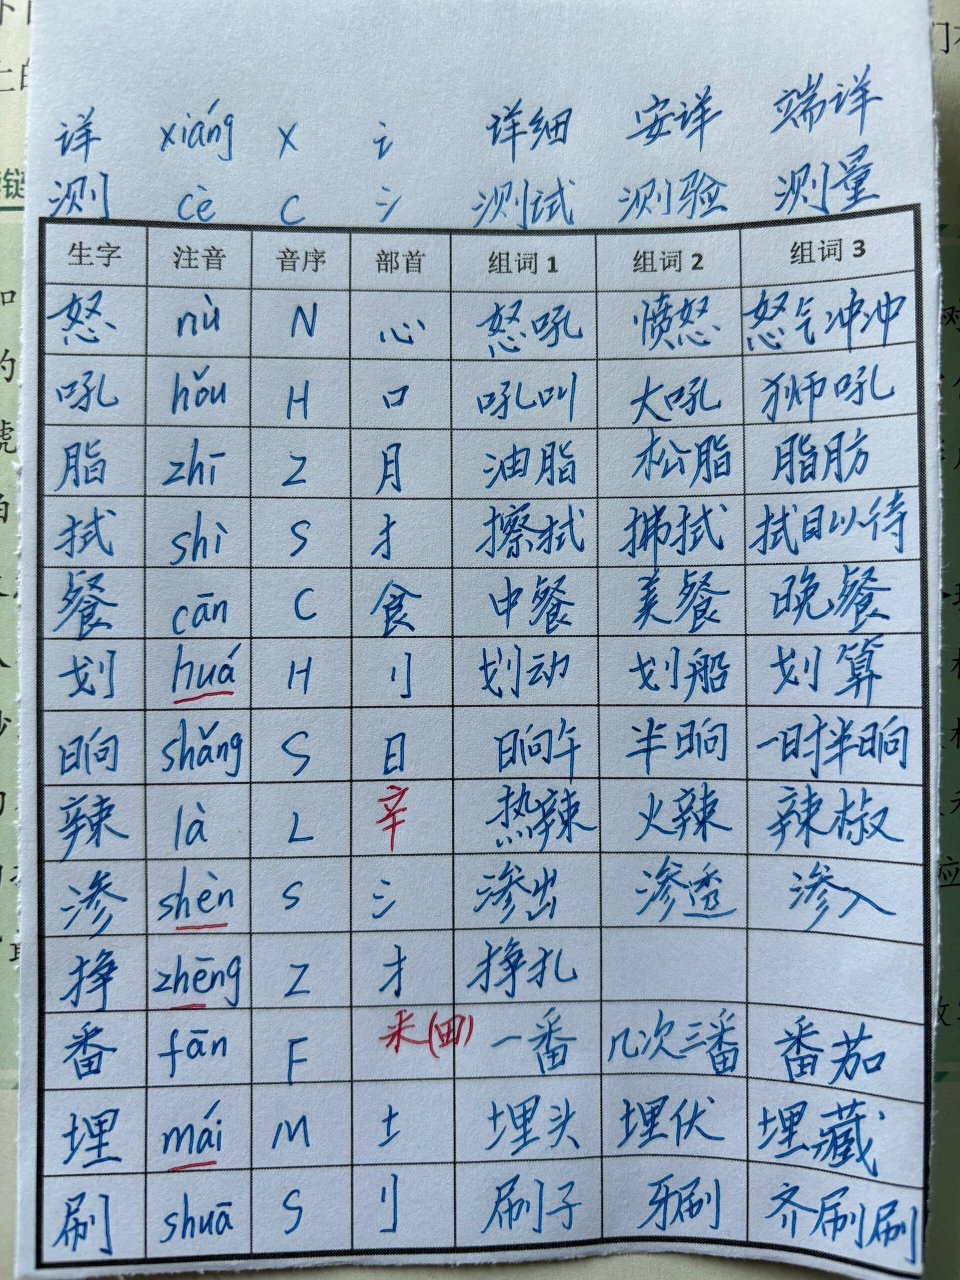 详 xiáng X 讠 详细 安详 端详
测 cè C 氵 测试 测验 测量
生字 注音 音序 部首 组词1 组词2 组词3
怒 nù N 心 怒吼 愤怒 怒气冲冲
吼 hǒu H 口 吼叫 大吼 狮吼
脂 zhī Z 月 油脂 松脂 脂肪
拭 shì S 扌 擦拭 拂拭 拭目以待
餐 cān C 食 中餐 美餐 晚餐
划 huá H 刂 划动 划船 划算
晌 shǎng S 日 晌午 半晌 一时半晌
辣 là L 辛 热辣 火辣 辣椒
渗 shèn S 氵 渗出 渗透 渗入
挣 zhēng Z 扌 挣扎
番 fān F 米(田) 一番 几次三番 番茄
埋 mái M 土 埋头 埋伏 埋藏
刷 shuā S 刂 刷子 牙刷 齐刷刷